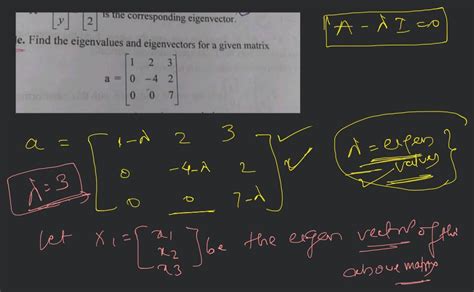 is the corresponding eigenvector.
y 2
A - λ I = 0
e. Find the eigenvalues and eigenvectors for a given matrix
1 2 3
a = 0 -4 2
0 0 7
a = 1-λ 2 3
0 -4-λ 2
0 0 7-λ
λ = eigen
values
λ = 3
let X1 = x1
x2
x3
be the eigen vectors of the
above matrix